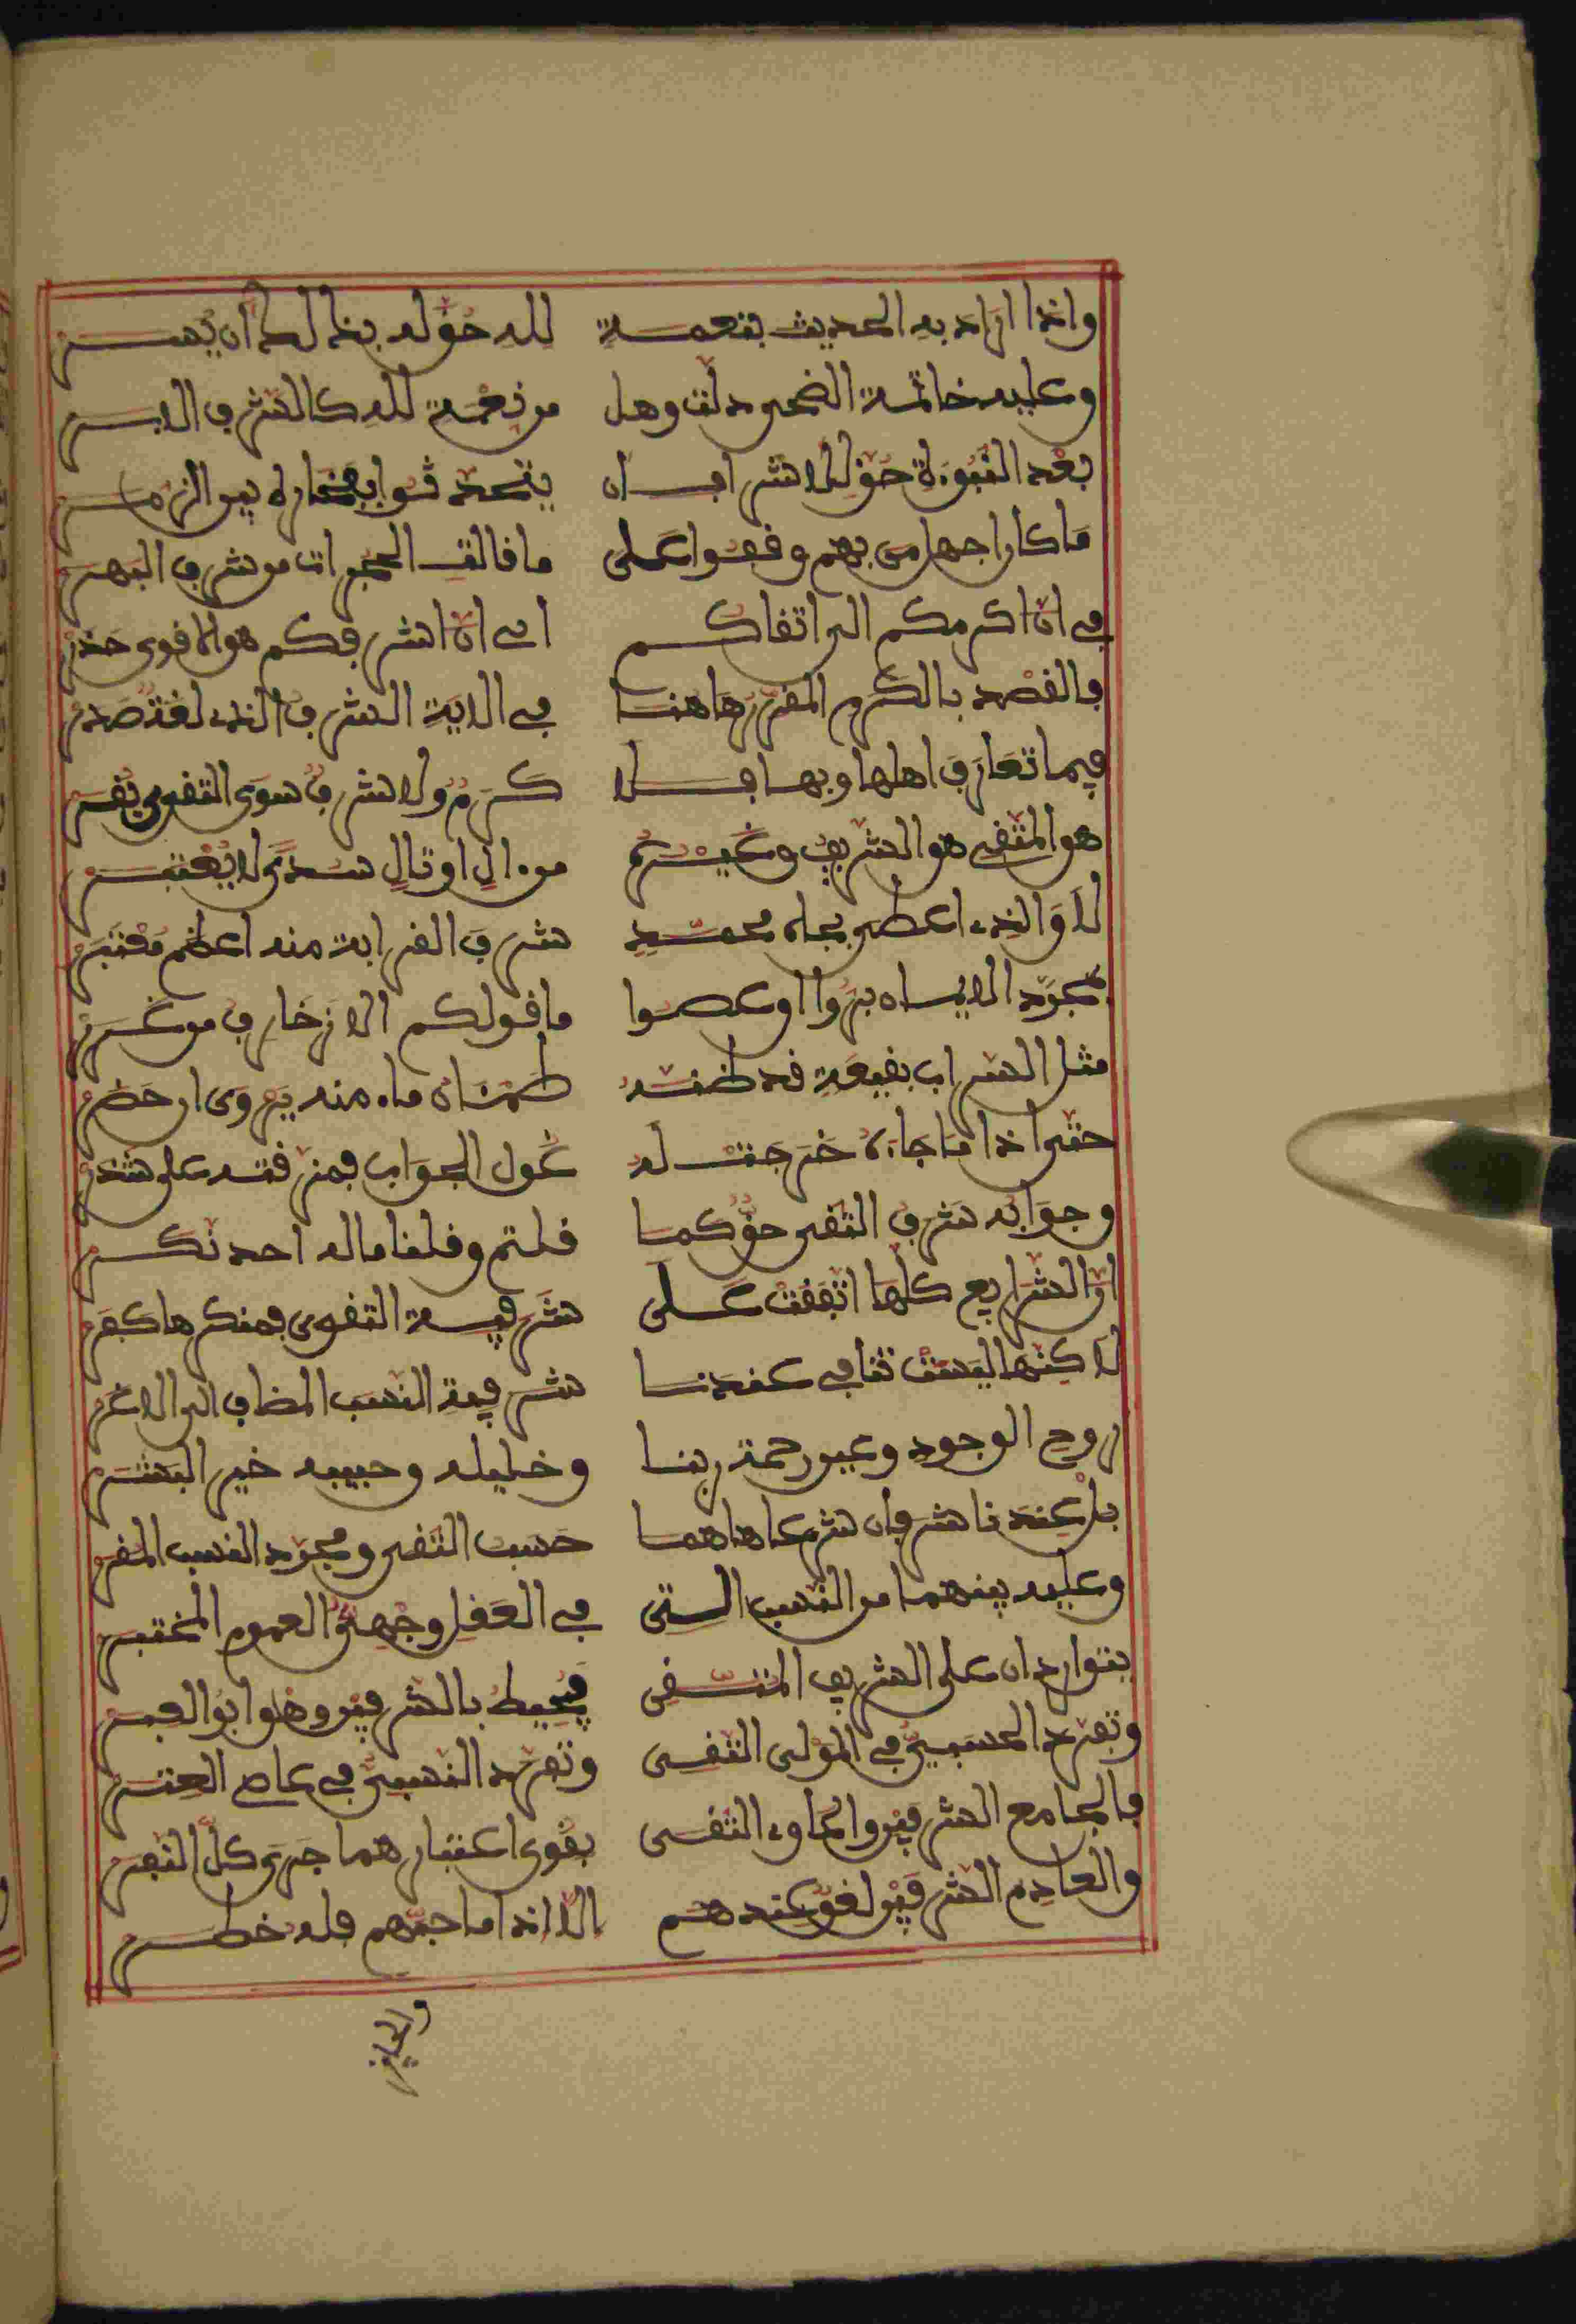 واذا اراد به الحديث بنعمة لله حق له بذالك ان يسر
وعليه خاتمة الضحى دلت وهل من نعمة لله كالشرف الابر
بعد النبوءة حق للاشراف ان
ما كان اجها من بهم وقفوا على ما قالت الحجرات من شرف البهر
في ان اكرمكم الى اتقاكم اي ان اشرفكم هو الاقوى حذر
فالقصد بالكرم المقرر هاهنا في الاية الشرف الذي لقد صدر
فيما تعارف اهلها وبها فلا كرم ولا شرف سوى التقوى يقر
هو المتقي هو الشريف وغيره من ءال او تال سدى لا يعتبر
لا والذي اعطى بجاه محمد شرف القرابة منه اعظم مفتخر
بمجرد الايمان بروا او عصوا ما قولكم الا زخارف من غرر
مثل السراب بقيعة قد ظنه ظمئان ماء منه يروى ان حضر
حتى اذا ما جاءه خرجت له غول الجواب فمزقته على شذر
وجوابه شرف التقى حق كما قلتم وقلنا ماله احد نكر
او الشرايع كلها اتفقت على شرفية التقوى فمنكرها كفر
لاكنها ليست تنافي عندنا شرفية النسب المضاف الى الاغر
روح الوجود وعين رحمة ربنا وخليله وحبيبه خير البشر
بل عندنا شرفان شرعا هاهما حسب التقى ومجرد النسب المقر
وعليه بينهما من النسب التي في العقل وجهي العموم المختبر
يتواردان على الشريف المتقي فيحيط بالشرفين وهو ابو العبر
وتفرد الحسبي في المولى التقي وتفرد النسبي في عاص العتر
فالجامع الشرفين والحاوي التقى بقوى اعتبارهما جرى كل النفر
والعادم الشرفين لغو عندهم الا اذا ما حبهم فله خطر